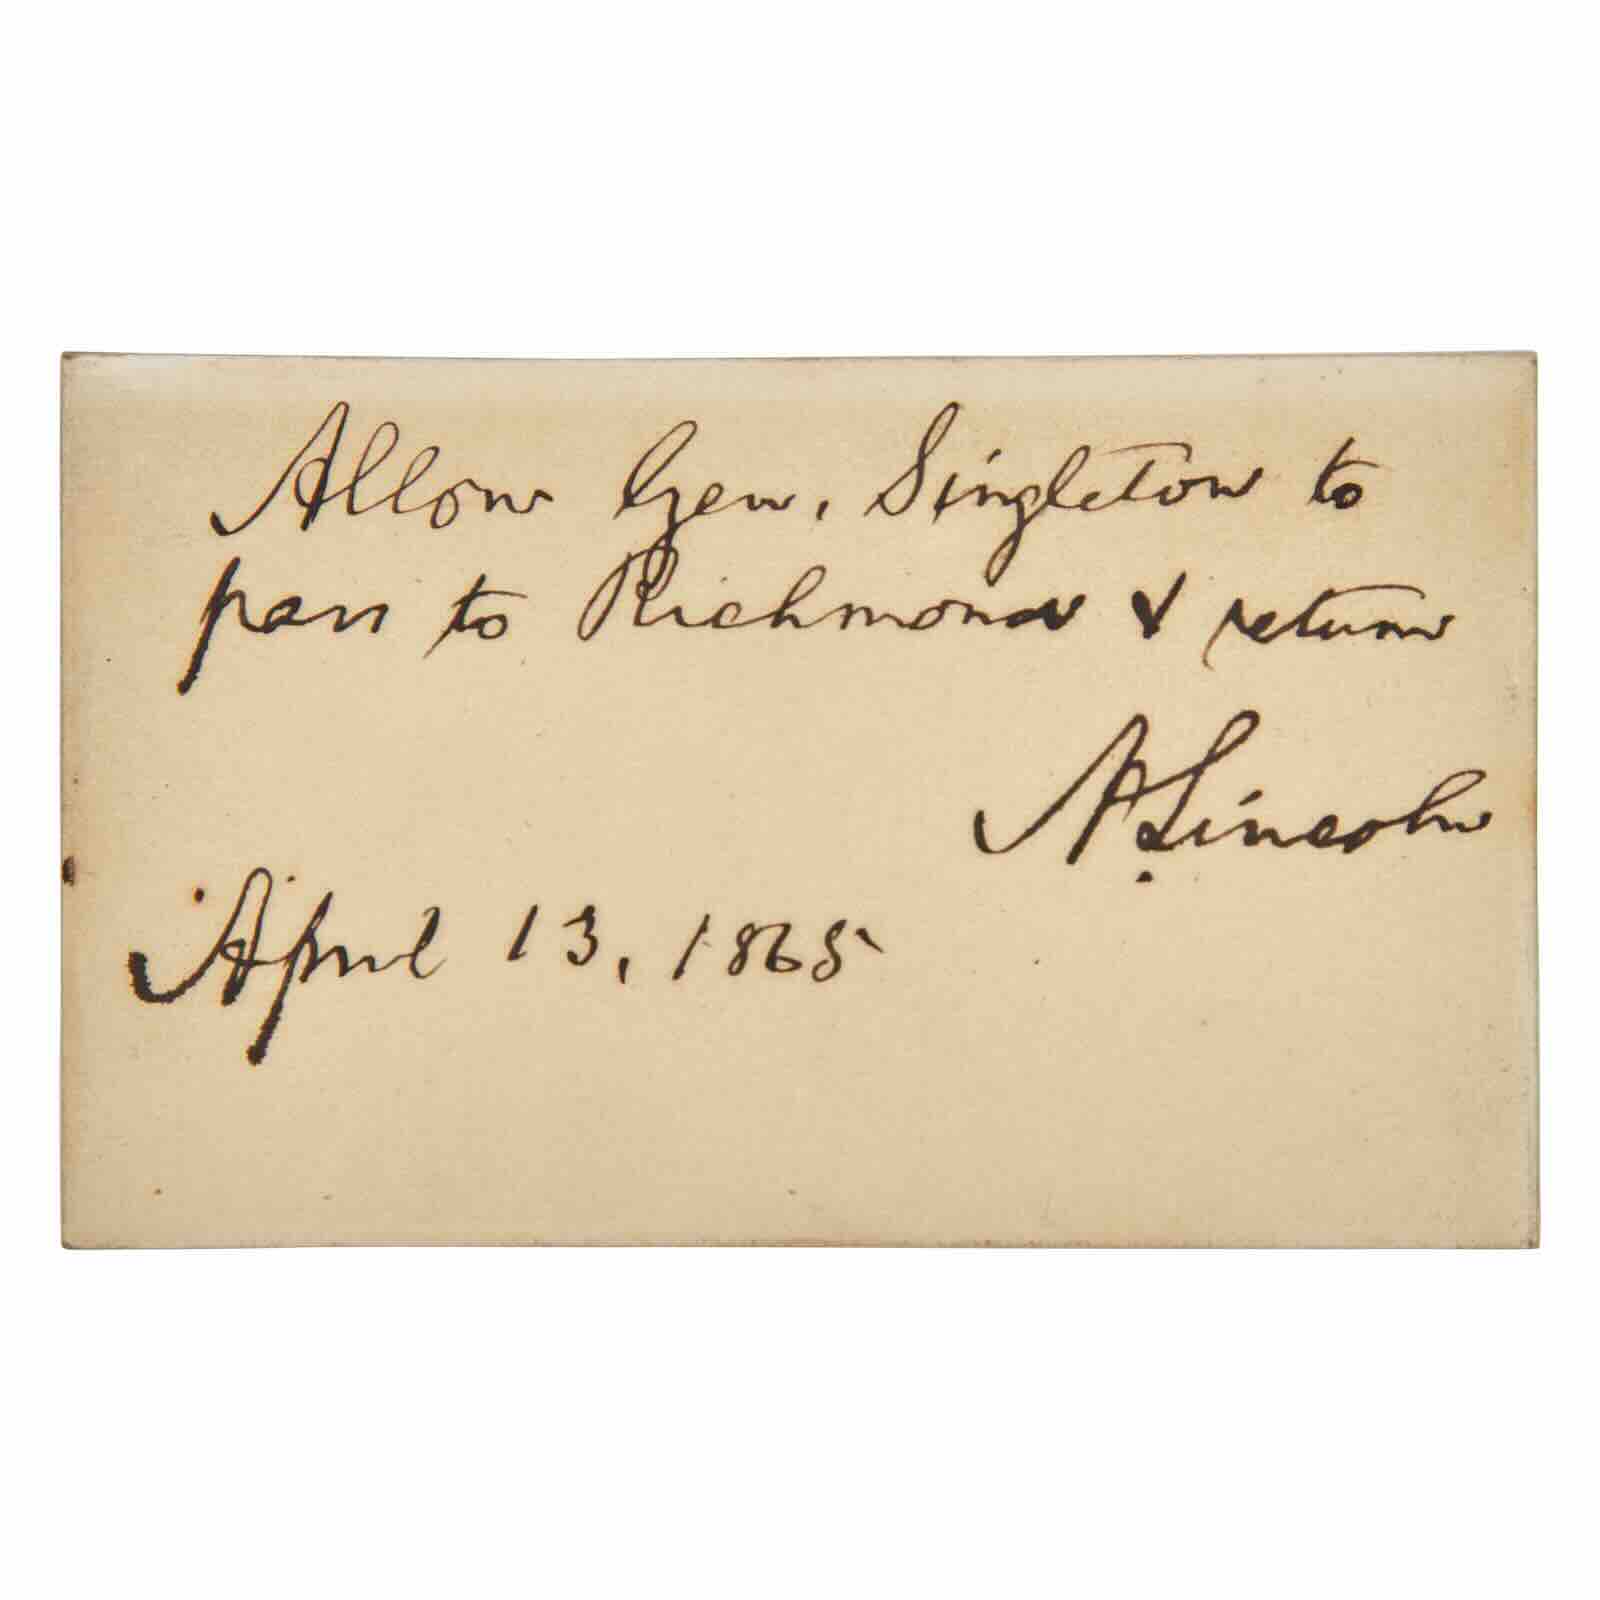 Allow Gen. Singleton to
pass to Richmond & return
A. Lincoln
April 13, 1865